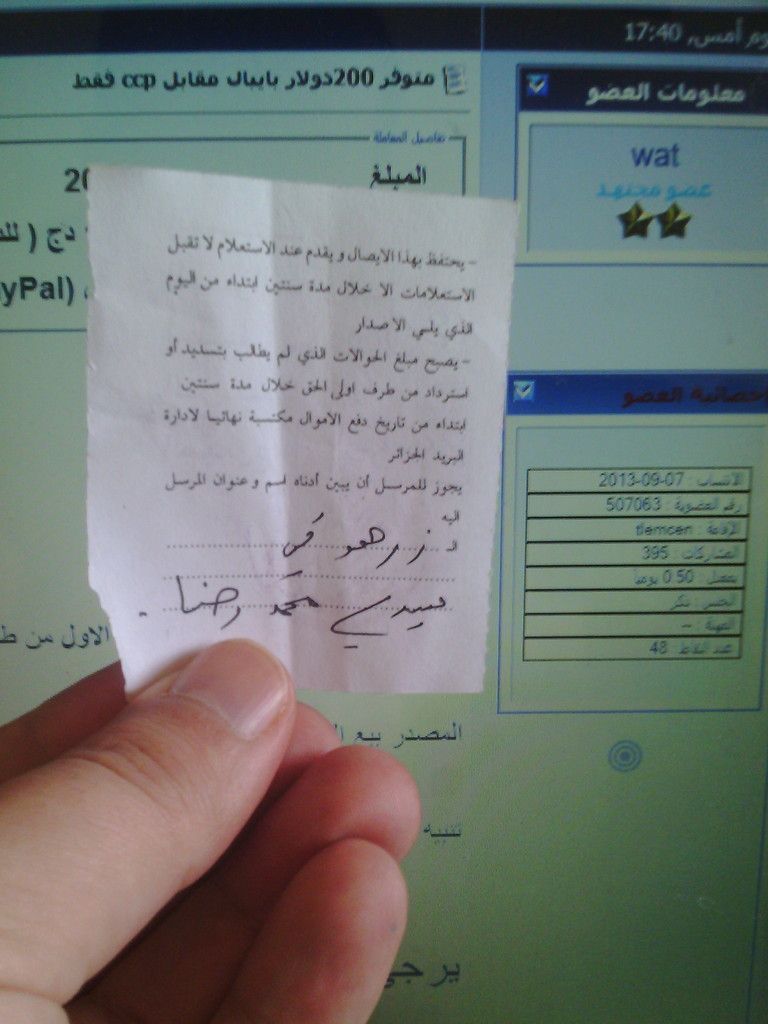 يوم أمس, 17:40
متوفر 200دولار بايبال مقابل ccp فقط
معلومات العضو
تفاصيل المعاملة
wat
عضو مجتهد
المبلغ
20
دج ( للـ
yPal) ،
- يحتفظ بهذا الايصال و يقدم عند الاستعلام لا تقبل
الاستعلامات الا خلال مدة سنتين ابتداء من اليوم
الذي يلي الاصدار
- يصبح مبلغ الحوالات الذي لم يطالب بتسديد أو
استرداد من طرف اولى الحق خلال مدة سنتين
ابتداء من تاريخ دفع الاموال مكتسبة نهائيا لادارة
البريد الجزائر
يجوز للمرسل أن يبين أدناه اسم و عنوان المرسل
اليه
الـ
سيدي محمد رضا .
احصائية العضو
الانتساب : 07-09-2013
رقم العضوية : 507063
الإقامة : tlemcen
المشاركات : 395
بمعدل : 0.50 يوميا
الجنس : ذكر
المهنة : --
عدد النقاط : 48
الاول من ط
المصدر بيع ال
تنبيه
يرجى